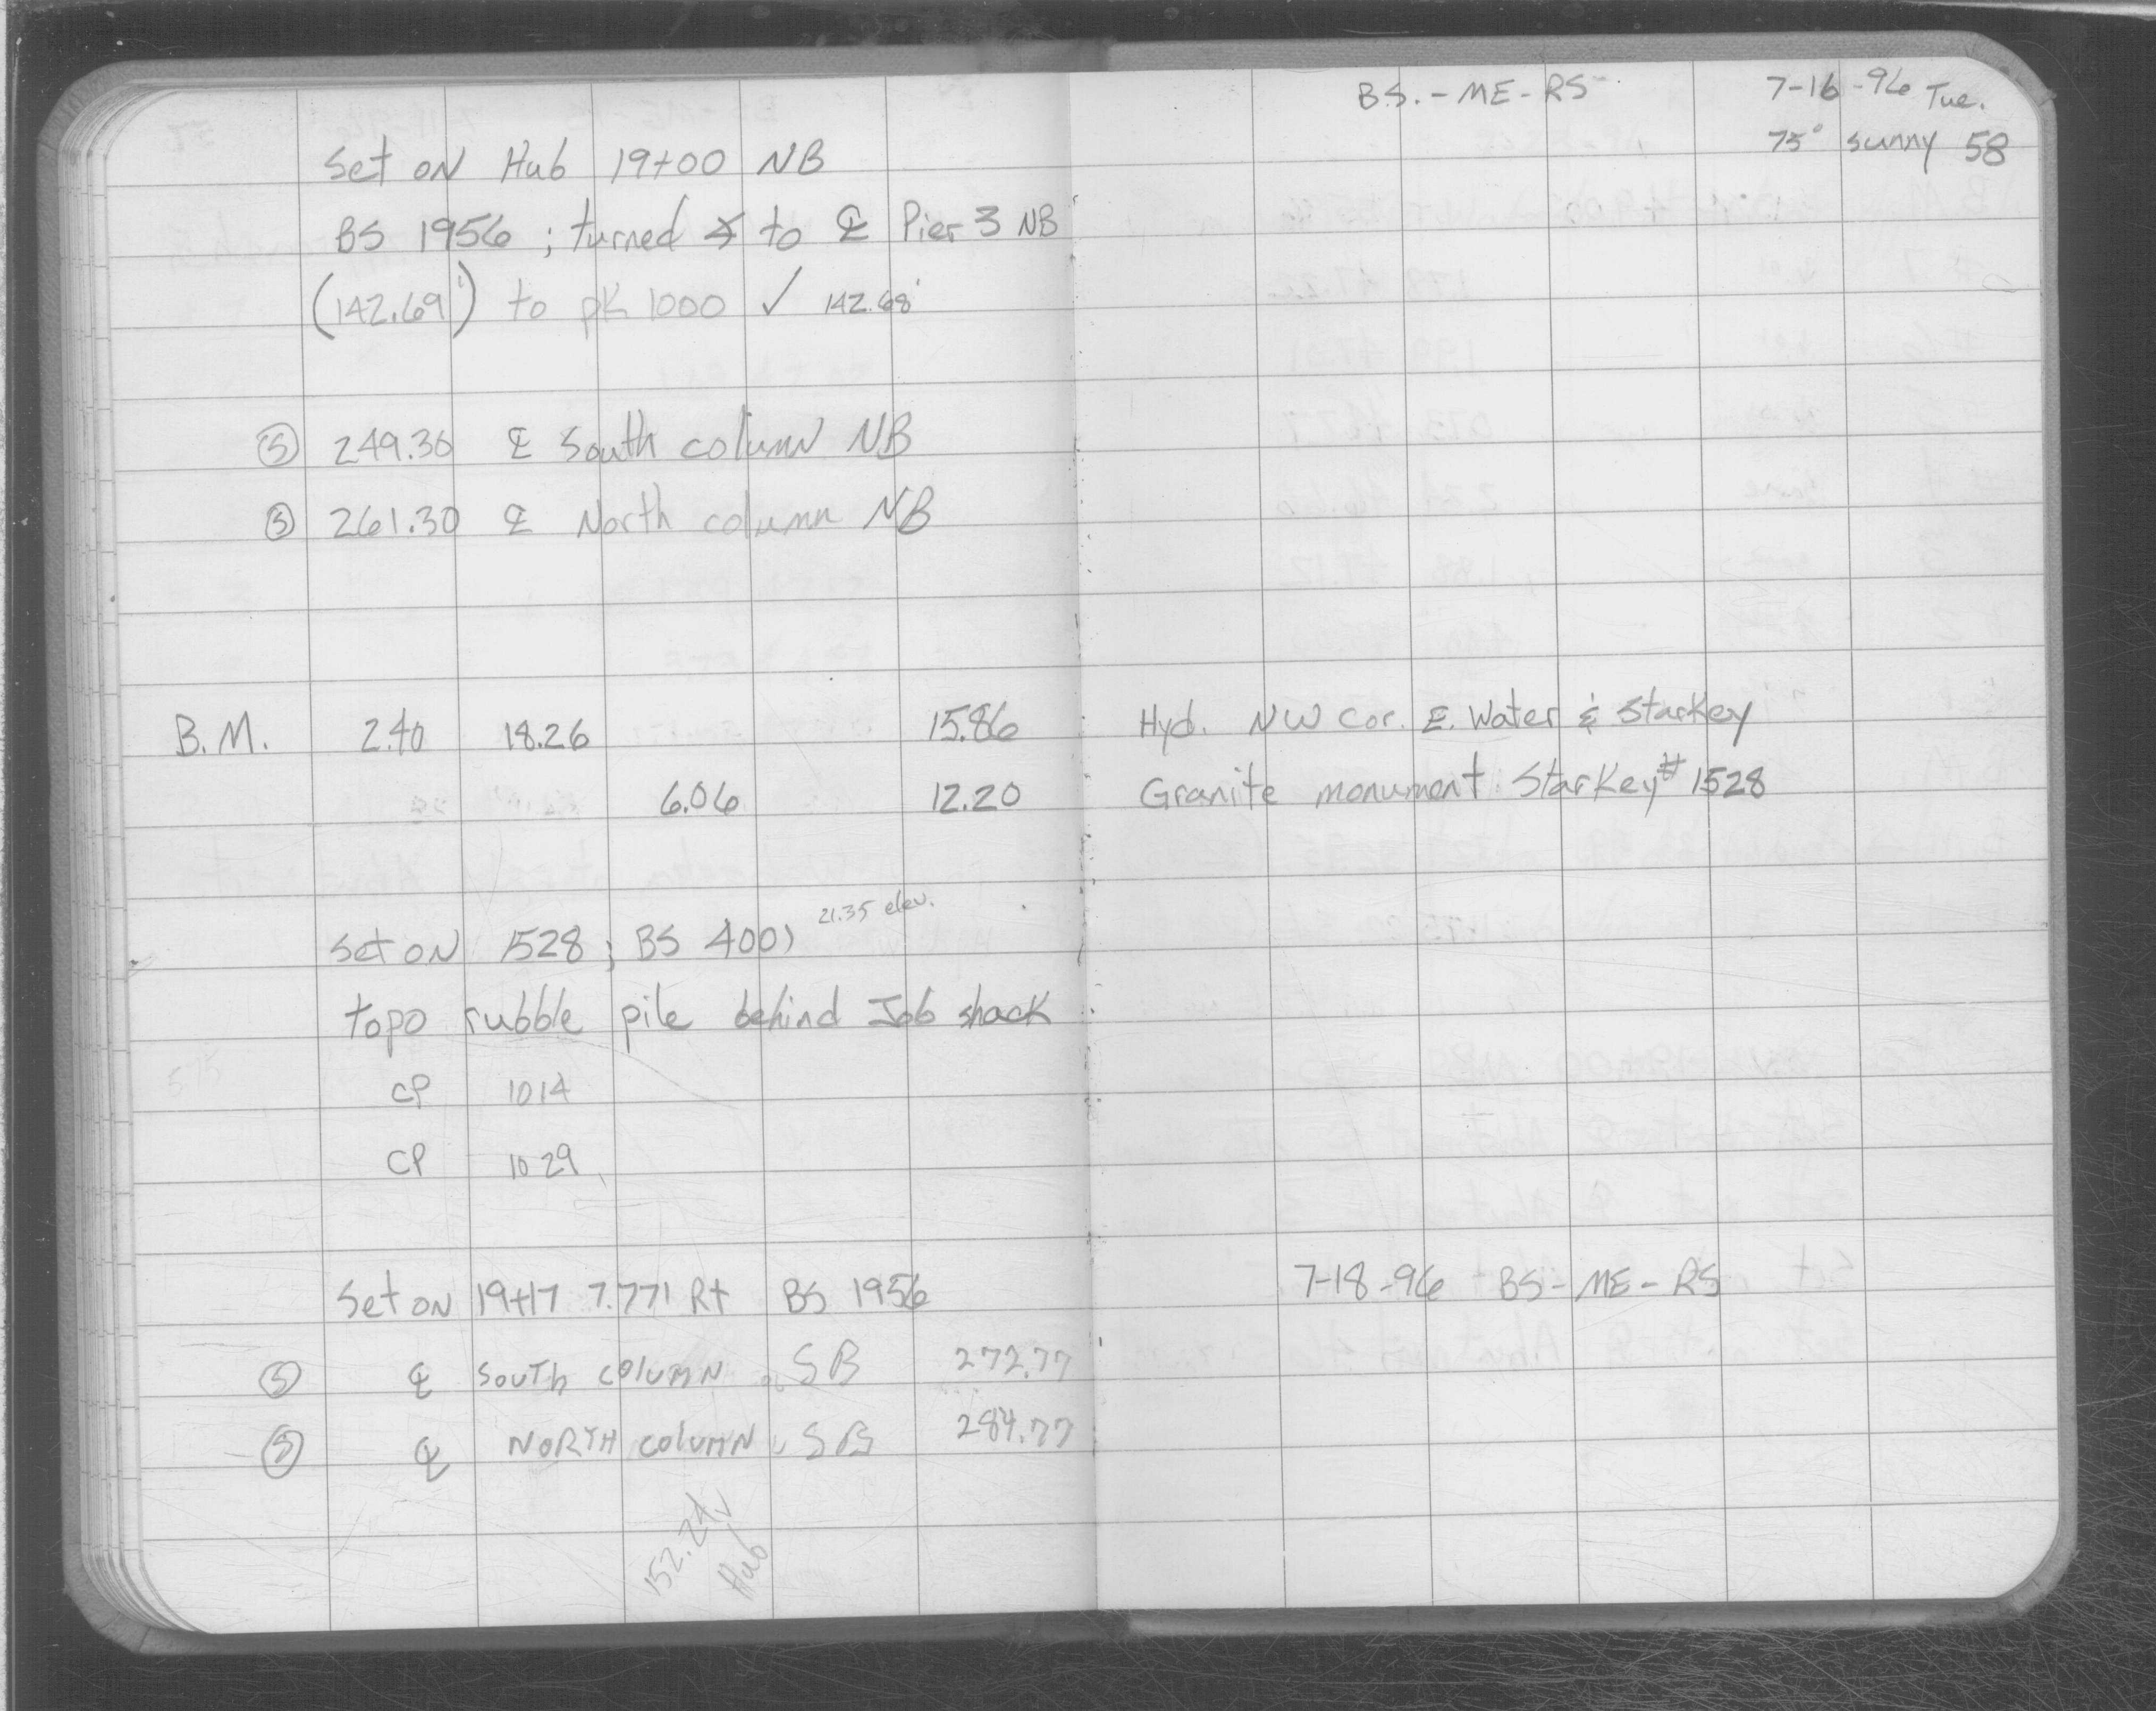 BS.-ME-RS 7-16-96 Tue.
75° sunny 58
Set on Hub 19+00 NB
BS 1956 ; turned ∡ to ℄ Pier 3 NB
(142.69') to pK 1000 ✓ 142.68'
Ⓢ 249.30 ℄ South column NB
Ⓢ 261.30 ℄ North column NB
B.M. 2.40 18.26 15.86 Hyd. NW Cor. E. Water & Starkey
6.06 12.20 Granite monument Starkey #1528
21.35 elev.
Set on 1528 ; BS 4001
topo rubble pile behind Job shack
CP 1014
CP 1029
Set on 19+17 7.771 Rt BS 1956 7-18-96 BS-ME-RS
Ⓢ ℄ South column SB 272.77
Ⓢ ℄ North column SB 284.77
152.24 ✓
Hub